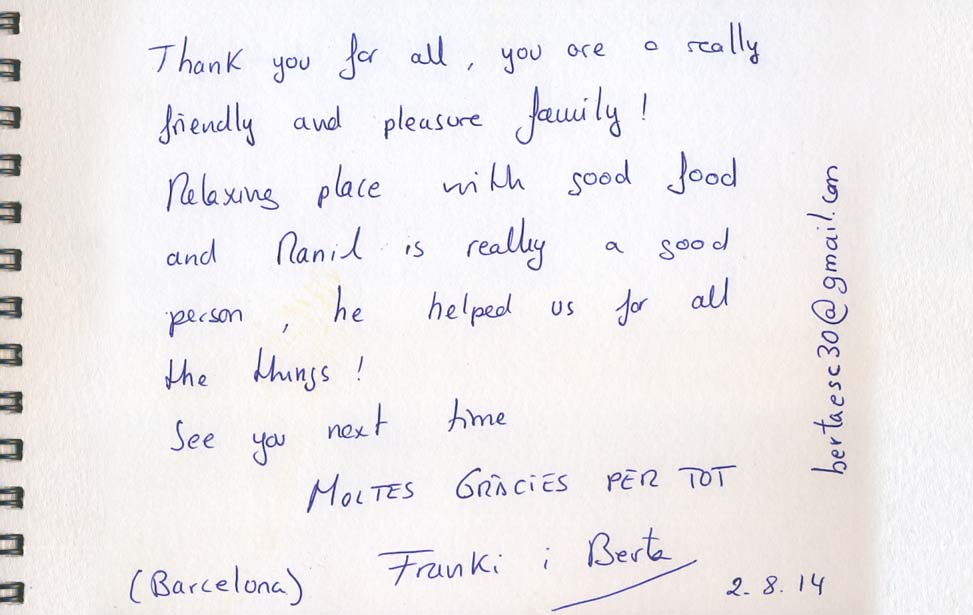 Thank you for all, you are a really
friendly and pleasure family!
Relaxing place with good food
and Ranil is really a good
person, he helped us for all
the things!
See you next time
MOLTES GRÀCIES PER TOT
Franki i Berta
(Barcelona)
2.8.14
bertaesc30@gmail.com